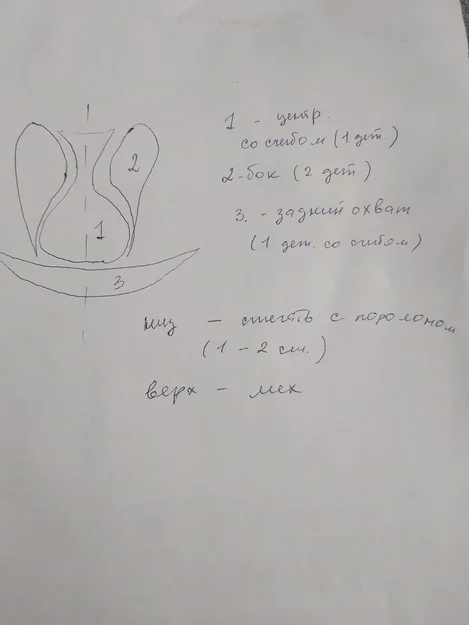 1 - центр.
со сгибом (1 дет.)
2
2 - бок (2 дет)
1
3. - задний охват
(1 дет. со сгибом)
3
низ - стегать с поролоном
(1 - 2 см.)
верх - мех